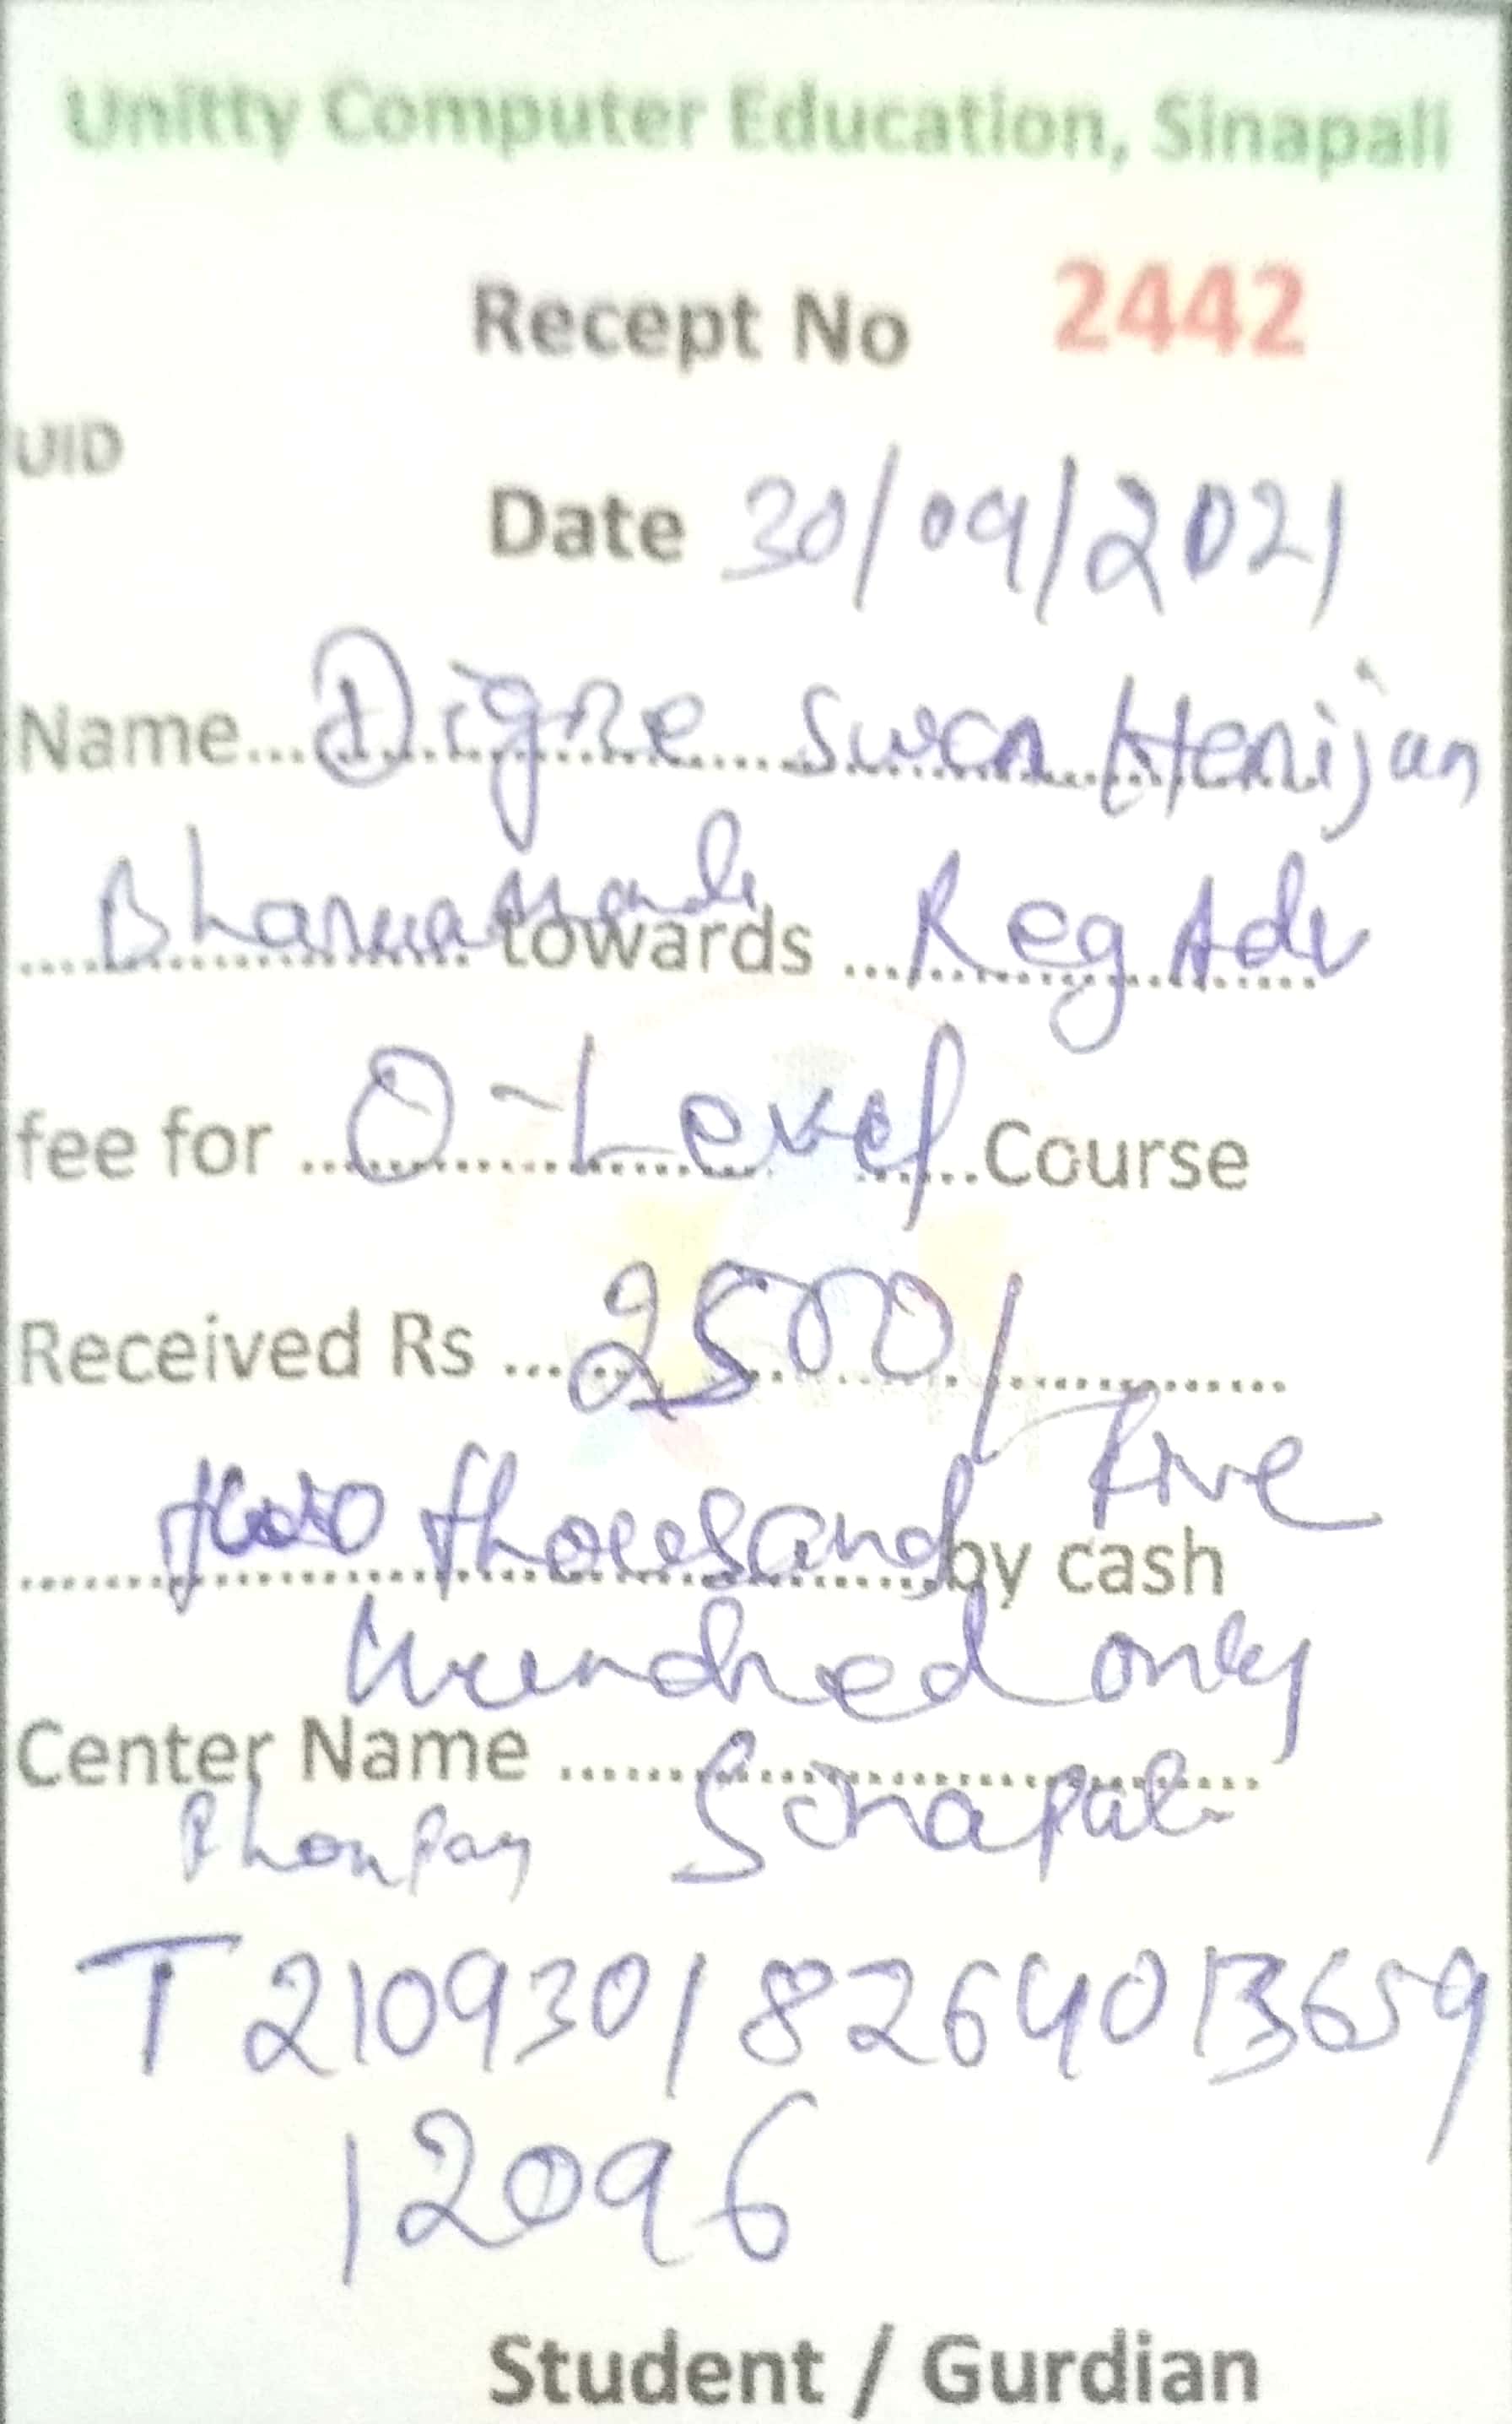 Unitty Computer Education, Sinapali
Recept No 2442
UID
Date 30/09/2021
Name... Digne Swan Henijan
towards ... Reg Adv
fee for ... O-Level ...Course
Received Rs ... 2500/
two thousand by cash Five
Hundred only
Center Name ...
PhonPay Sinapali
T 210930182640 13659
12096
Student / Gurdian